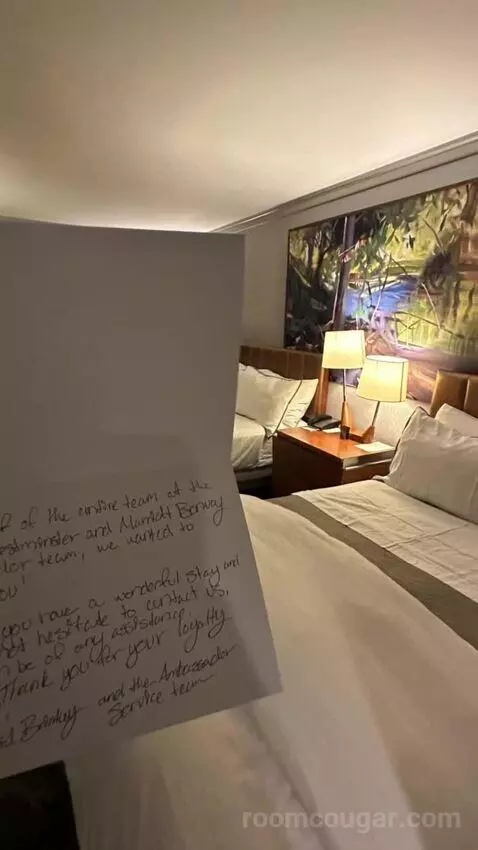 of the entire team at the
estminster and Marriott Bonvoy
dor team, we wanted to
ou!
you have a wonderful stay and
not hesitate to contact us,
n be of any assistance.
Thank you for your loyalty
and the Ambassador
Service team
roomcougar.com